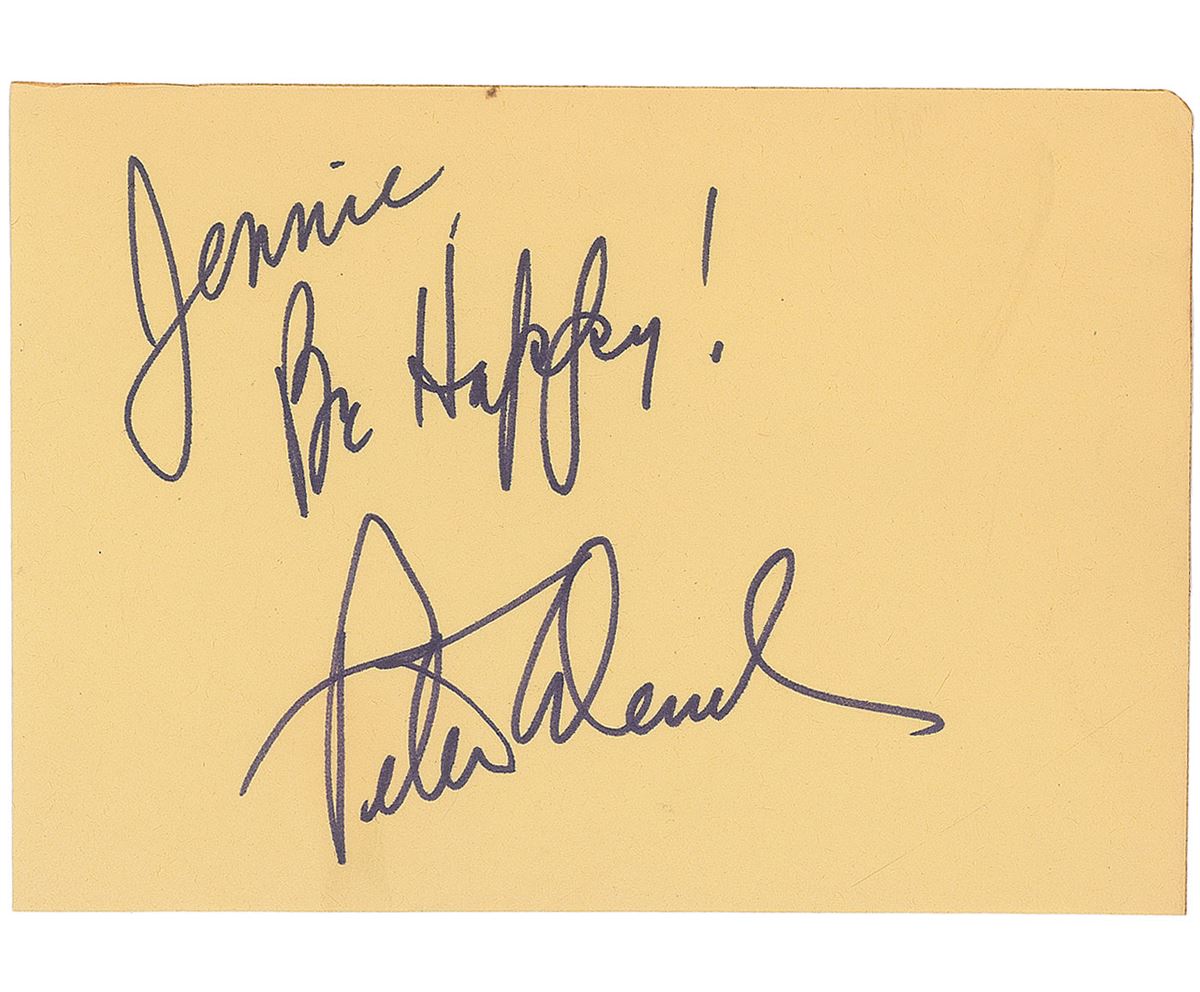 Jennie
Be Happy!
Peter Deuel